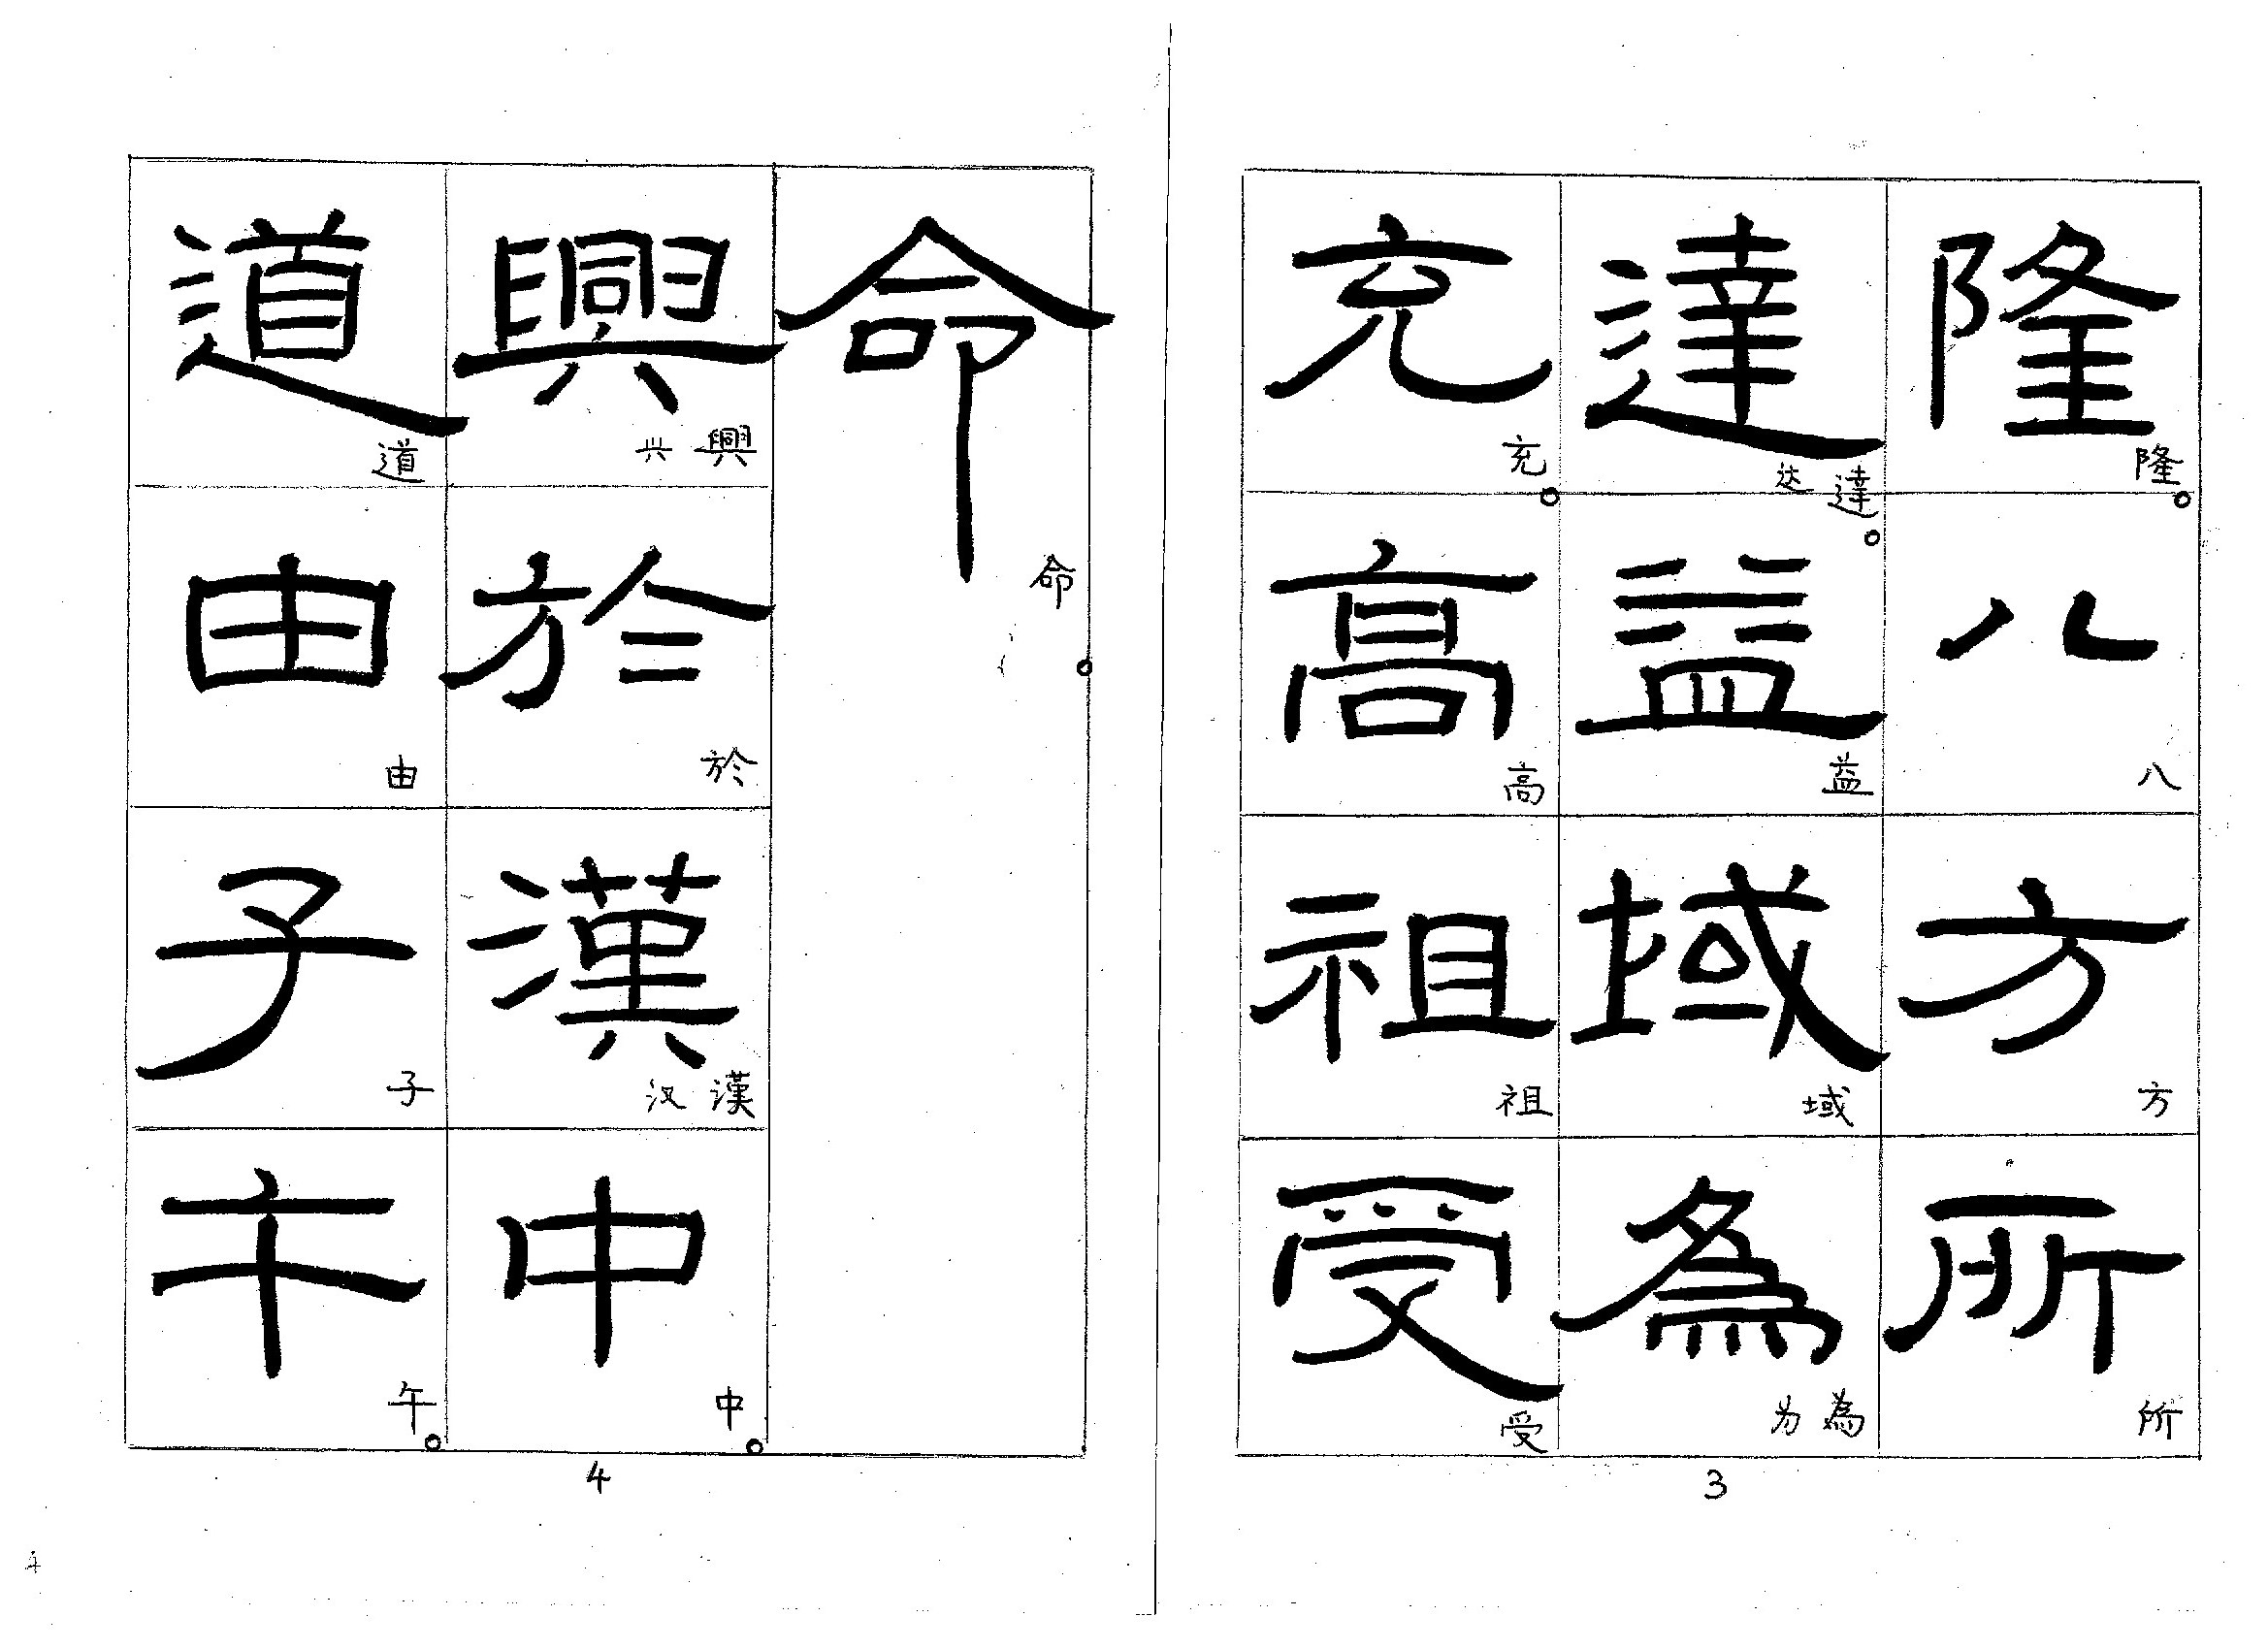 隆八方所
隆。
八
方
所
達益域為
达 達。
益
域
为 為
充高祖受
充。
高
祖
受
3
命
命。
興於漢中
兴 興
於
汉 漢
中。
道由子午
道
由
子
午。
4